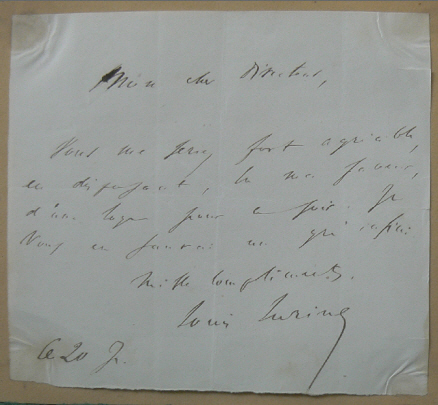 Mon cher Directeur,
Vous me serez fort agréable,
en disposant, en ma faveur,
d'une loge pour ce soir. Je
Vous en saurai un gré infini
Mille compliments.
Louis Lurine
Ce 20 J.